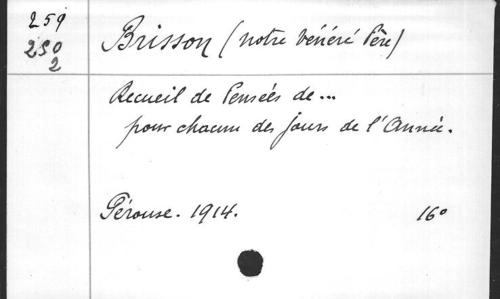 259
250
2
Brisson (notre Vénéré Père)
Recueil de Pensées de...
pour chacun des jours de l'Année.
Pérouse. 1914. 16°